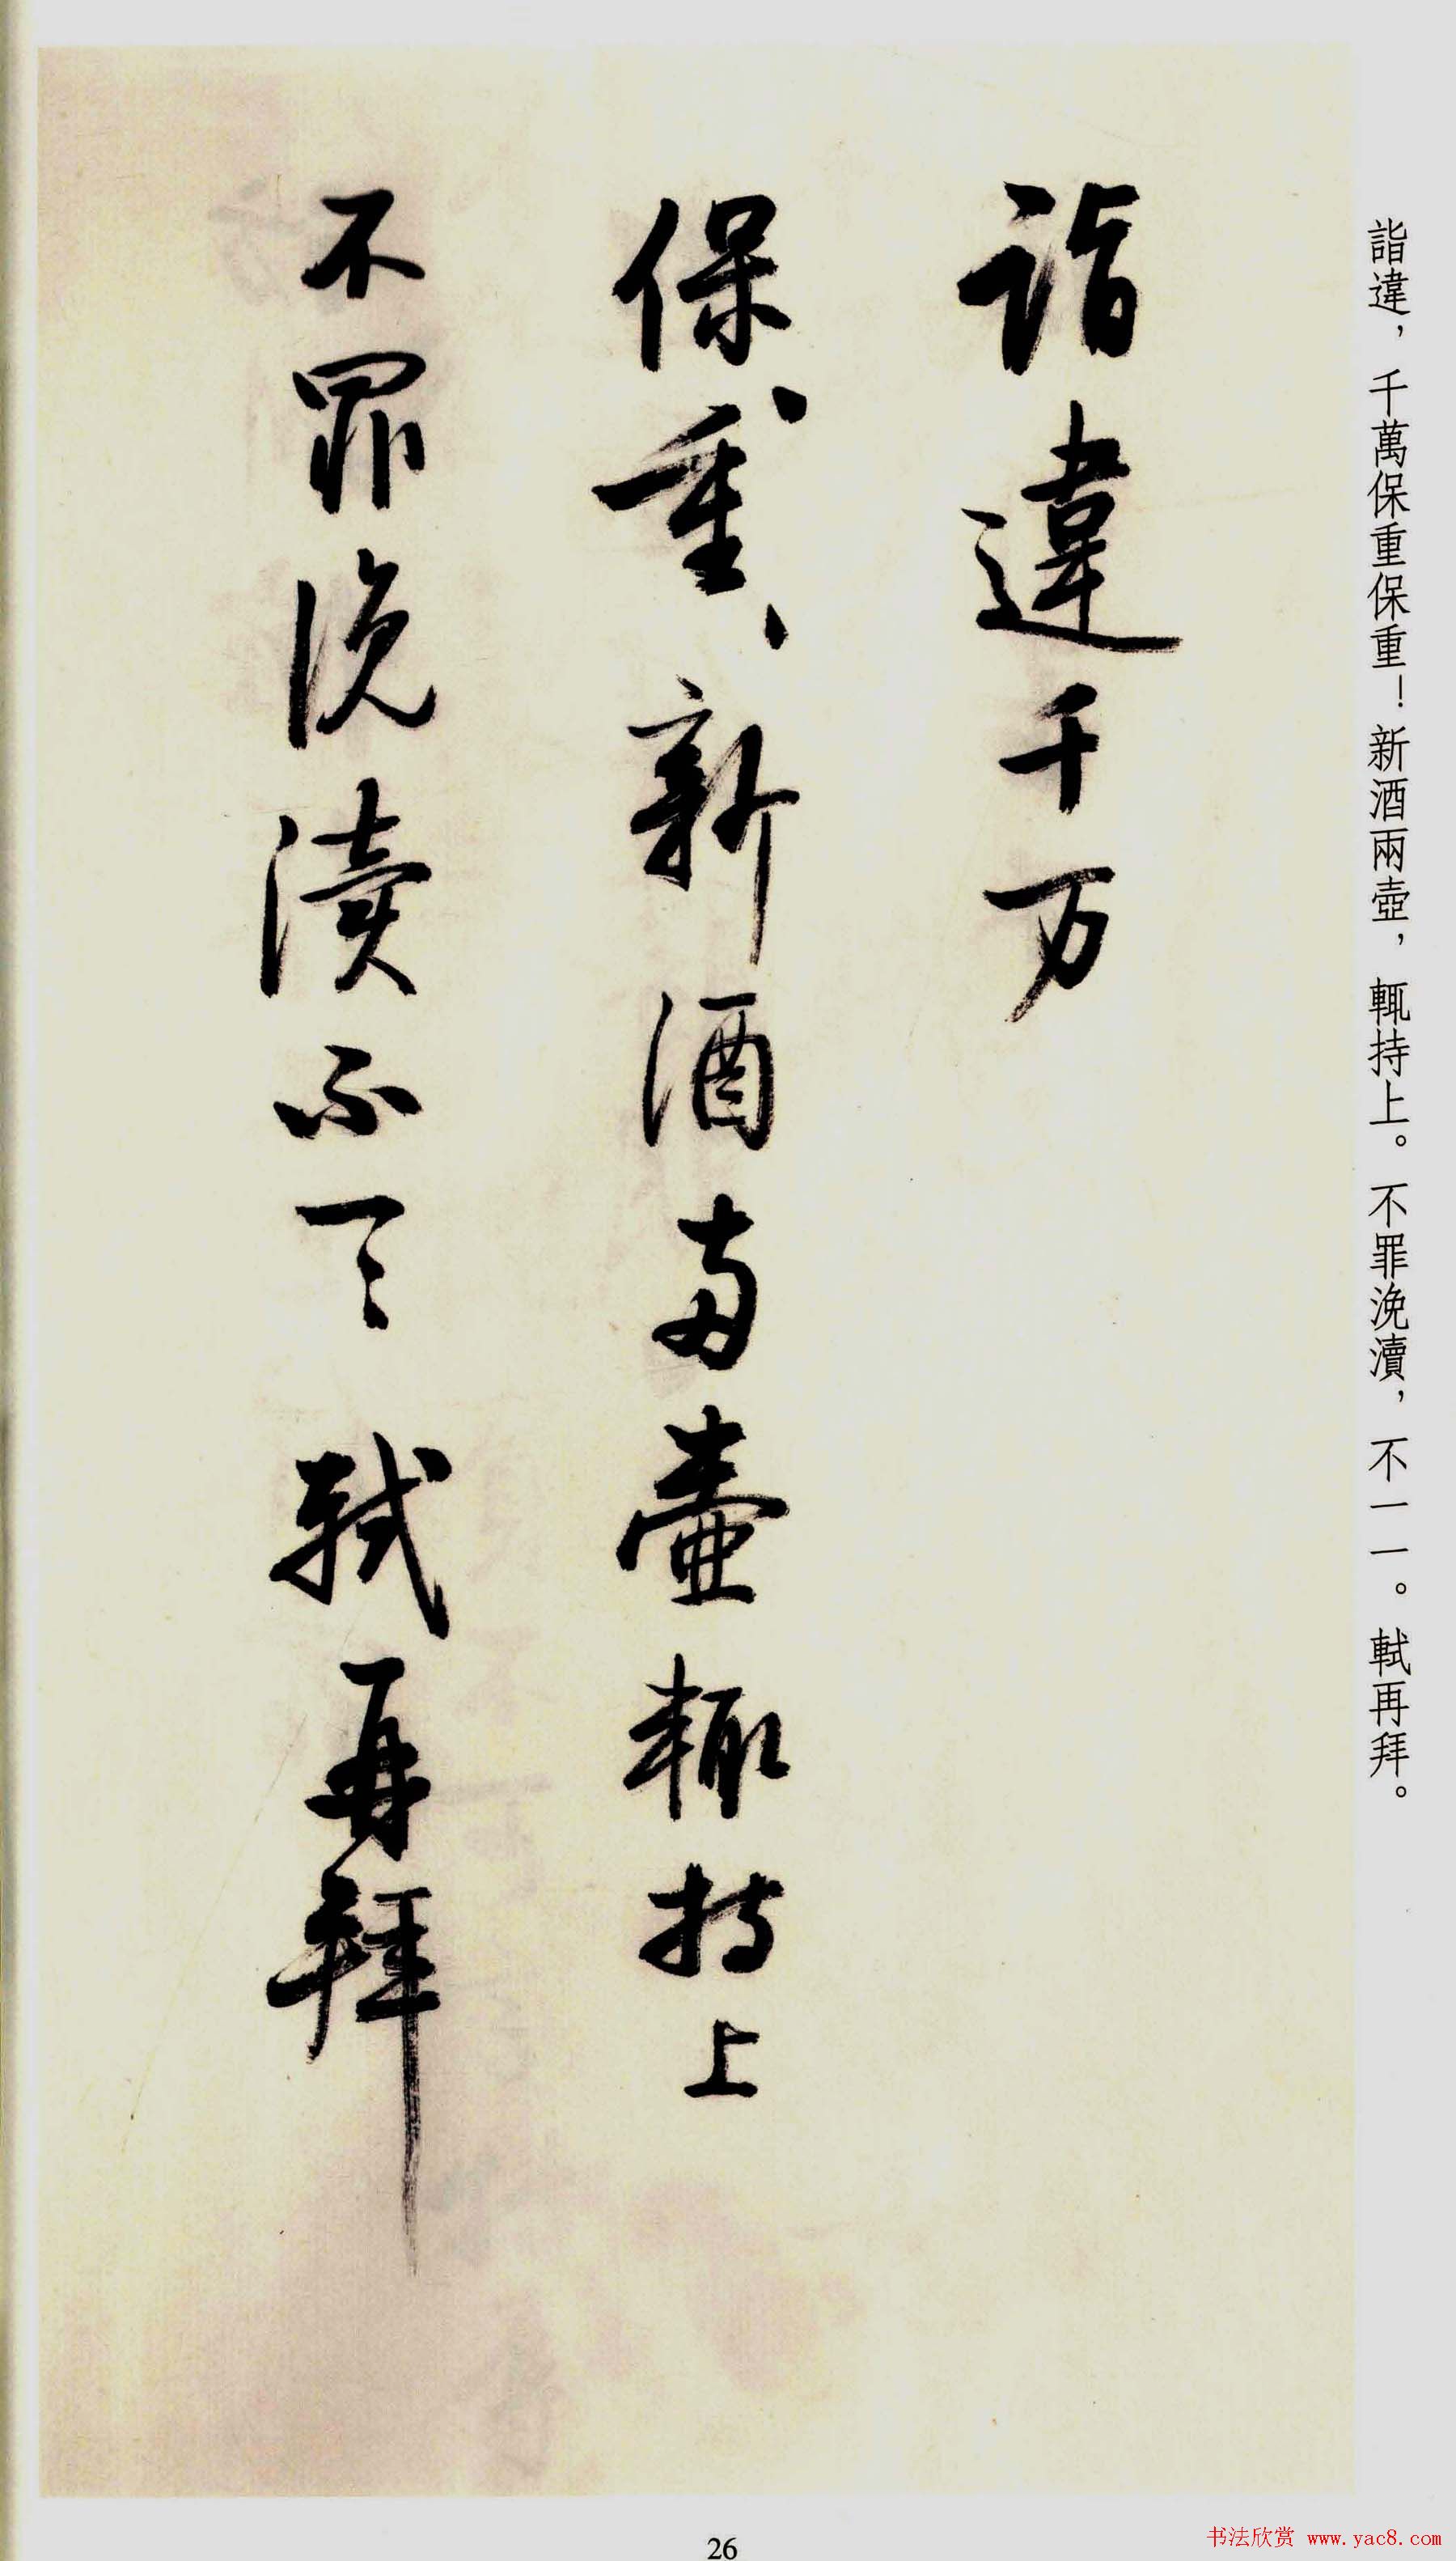 詣違，千萬保重保重！新酒兩壺，輒持上。不罪浼瀆，不一一。軾再拜。
詣違千万
保重〻新酒兩壺輒持上
不罪浼瀆不一〻軾再拜
26
书法欣赏 www.yac8.com